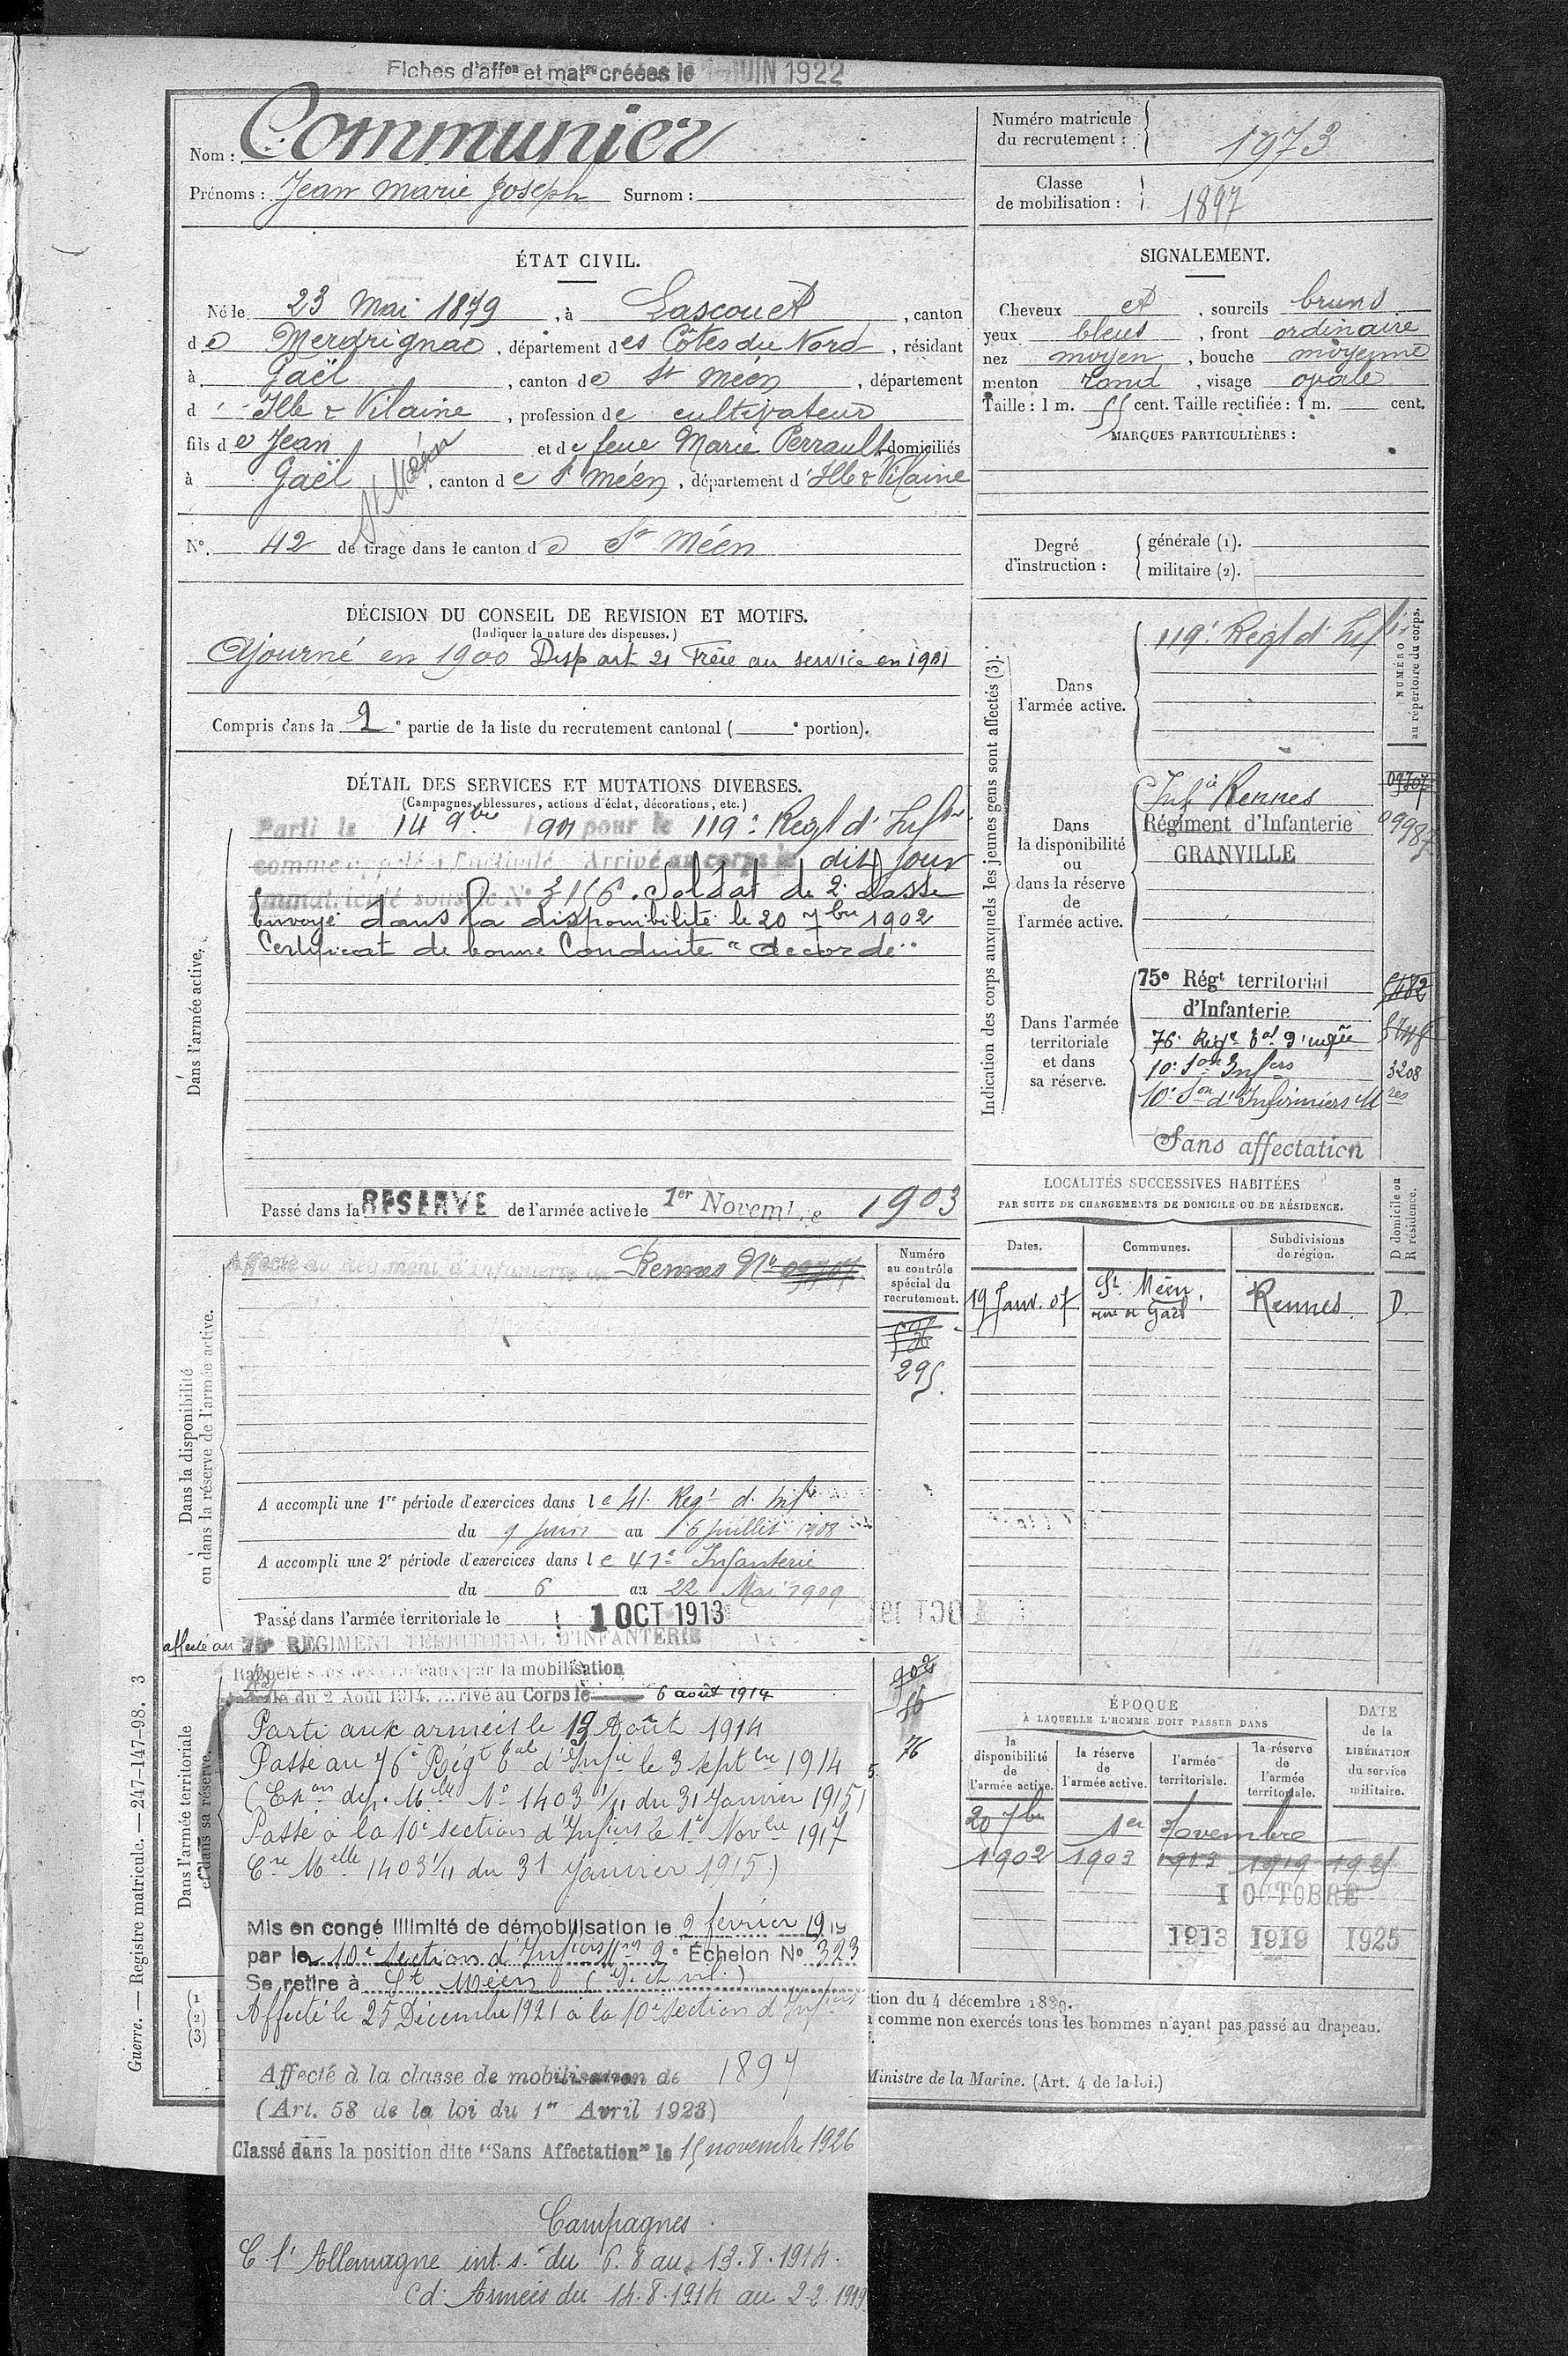 Fiches d'affon et matre créées le JUIN 1922
Nom : Communier
Prénoms : Jean Marie Joseph Surnom :
Numéro matricule du recrutement : 1973
Classe de mobilisation : 1897
ÉTAT CIVIL.
Né le 23 Mai 1879, à Lascouet, canton
de Merdrignac, département des Côtes du Nord, résidant
à Gaël, canton de St Méen, département
d'Ille & Vilaine, profession de cultivateur
fils de Jean et de feue Marie Perrault domiciliés
à Gaël, canton de St Méen, département d'Ille & Vilaine
St Méen
N°. 42 de tirage dans le canton de St Méen
SIGNALEMENT.
Cheveux et, sourcils bruns
yeux bleus, front ordinaire
nez moyen, bouche moyenne
menton rond, visage ovale
Taille : 1 m. 55 cent. Taille rectifiée : 1 m. cent.
MARQUES PARTICULIÈRES :
Degré d'instruction : générale (1).
militaire (2).
DÉCISION DU CONSEIL DE REVISION ET MOTIFS.
(Indiquer la nature des dispenses.)
Ajourné en 1900 Disp art 21 Frère au service en 1901
Compris dans la 2e partie de la liste du recrutement cantonal ( e portion).
DÉTAIL DES SERVICES ET MUTATIONS DIVERSES.
(Campagnes, blessures, actions d'éclat, décorations, etc.)
Dans l'armée active.
Parti le 14 9bre 1901 pour le 119e Regt d'Infie
comme appelé à l'activité Arrivé au corps le dit jour
immatriculé sous le N° 3156. Soldat de 2e classe
Envoyé dans la disponibilité le 20 7bre 1902
Certificat de bonne Conduite "accordé"
Passé dans la RESERVE de l'armée active le 1er Novembre 1903
Indication des corps auxquels les jeunes gens sont affectés (3).
NUMÉRO au répertoire du corps.
Dans l'armée active.
119e Regt d'Inf
Dans la disponibilité ou dans la réserve de l'armée active.
Infie Rennes 09707
Régiment d'Infanterie 09987
GRANVILLE
Dans l'armée territoriale et dans sa réserve.
75e Régt territorial 5482
d'Infanterie
10e Son Infers 3208
10e Son d'Infirmiers Mres
Sans affectation
LOCALITÉS SUCCESSIVES HABITÉES
PAR SUITE DE CHANGEMENTS DE DOMICILE OU DE RÉSIDENCE.
Dates. Communes. Subdivisions de région. D domicile ou R résidence.
19 Janv. 07 St Méen, rue de Gaël Rennes D.
Dans la disponibilité ou dans la réserve de l'armée active.
Affecté au Régiment d'Infanterie de Rennes N° 09707
Numéro au contrôle spécial du recrutement.
295.
A accompli une 1re période d'exercices dans le 41e Regt d'Infie
du 9 Juin au 6 juillet 1908
A accompli une 2e période d'exercices dans le 41e Infanterie
du 6 au 22 Mai 1909
Passé dans l'armée territoriale le 1 OCT 1913
affecté au 75e REGIMENT TERRITORIAL D'INFANTERIE
Dans l'armée territoriale et dans sa réserve.
Rappelé sous les drapeaux par la mobilisation
générale du 2 Août 1914. Arrivé au Corps le 6 août 1914
902
76
Parti aux armées le 13 Août 1914
Passé au 76e Régt tal d'Infie le 3 septbre 1914
(Exon dép. Mlle N° 1403 1/11 du 31 Janvier 1915)
Passé à la 10e section d'Infiers le 1er Novbre 1917
Cre Melle 1403 1/11 du 31 Janvier 1915)
Mis en congé illimité de démobilisation le 2 février 1919
par le 10e section d'Infiers Mres 2e Échelon N° 323
Se retire à St Méen
Affecté le 25 Décembre 1921 à la 10e section d'Infiers
Affecté à la classe de mobilisation de 1897
(Art. 58 de la loi du 1er Avril 1923)
Classé dans la position dite "Sans Affectation" le 15 novembre 1926
Campagnes.
C. l'Allemagne int. s. du 6.8 au 13.8.1914.
Cd. Armées du 14.8.1914 au 2.2.1919
ÉPOQUE
À LAQUELLE L'HOMME DOIT PASSER DANS
la disponibilité de l'armée active. la réserve de l'armée active. l'armée territoriale. la réserve de l'armée territoriale.
DATE de la LIBÉRATION du service militaire.
20 7bre 1er Novembre
1902 1903 1913 1919 1925
1 OCTOBRE
1913 1919 1925
(1
(2)
(3)
ction du 4 décembre 1889.
comme non exercés tous les hommes n'ayant pas passé au drapeau.
Ministre de la Marine. (Art. 4 de la loi.)
Guerre. — Registre matricule. — 247-147-98. 3